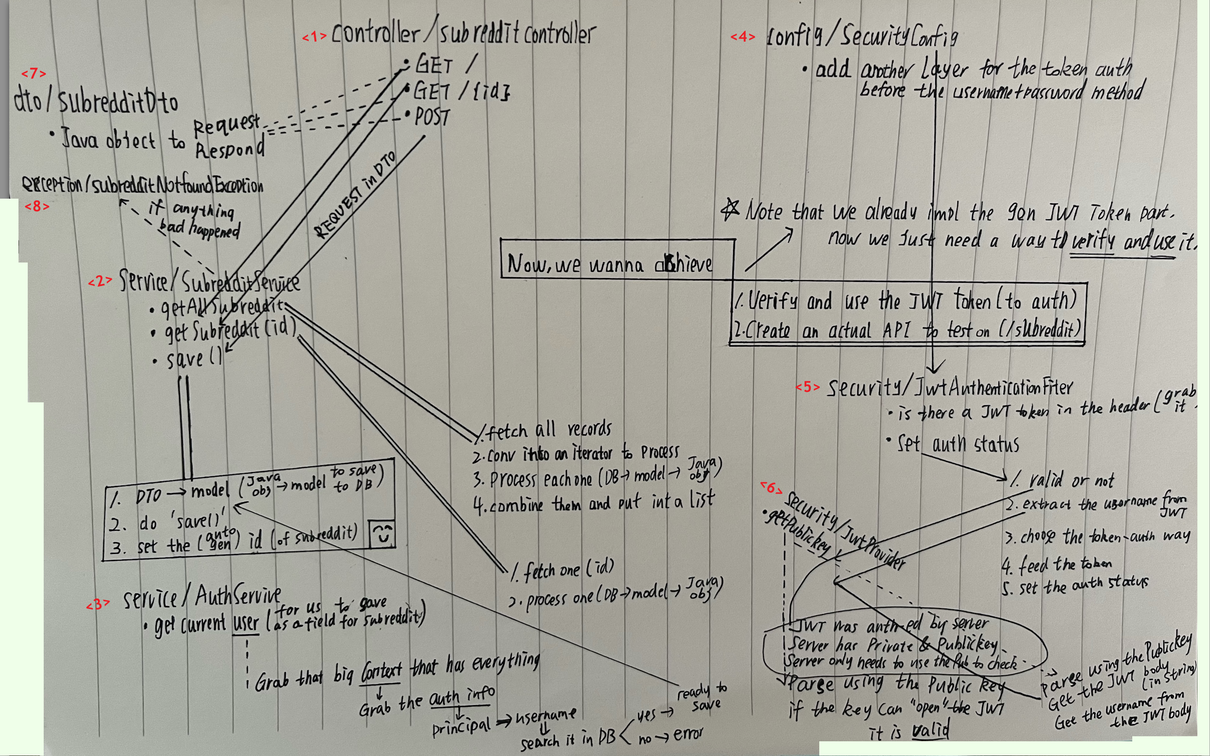 <1> Controller/subredditController
• GET /
• GET /{id}
• POST
REQUEST in DTO
<7>
dto/SubredditDto
• Java object to Request
Respond
exception/subredditNotFoundException
<8>
if anything
bad happened
<2> Service/SubredditService
• getAllSubreddit
• getSubreddit(id)
• save()
1. DTO → model (Java obj → model to save to DB)
2. do 'save()'
3. set the (auto gen) id (of subreddit)
1. fetch all records
2. conv into an iterator to process
3. process each one (DB→model→ Java obj)
4. combine them and put into a list
1. fetch one (id)
2. process one (DB→model→ Java obj)
<3> service/AuthServive
• get current user (for us to save as a field for subreddit)
Grab that big Context that has everything
Grab the auth info
principal → username
search it in DB
yes → ready to save
no → error
<4> config/SecurityConfig
• add another layer for the token auth
before the username+password method
☆ Note that we already impl the gen JWT Token part.
now we just need a way to verify and use it.
Now, we wanna achieve
1. Verify and use the JWT token (to auth)
2. Create an actual API to test on (/subreddit)
<5> security/JwtAuthenticationFilter
• is there a JWT token in the header (grab it
• set auth status
1. valid or not
2. extract the username from JWT
3. choose the token-auth way
4. feed the token
5. set the auth status
<6> security/JwtProvider
• getPublickey
JWT was auth-ed by server
Server has Private & Publickey
Server only needs to use the Pub to check
Parse using the Public key
if the key can "open" the JWT
it is valid
Parse using the Publickey
Get the JWT body
(in string)
Get the username from
the JWT body